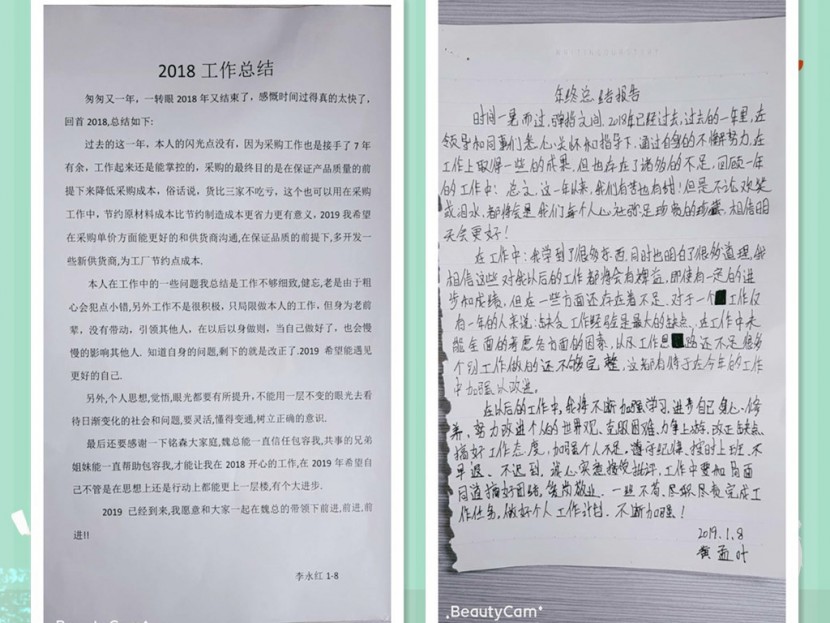 2018 工作总结
匆匆又一年，一转眼 2018 年又结束了，感慨时间过得真的太快了，
回首 2018,总结如下:
过去的这一年，本人的闪光点没有，因为采购工作也是接手了 7 年
有余，工作起来还是能掌控的，采购的最终目的是在保证产品质量的前
提下来降低采购成本，俗话说，货比三家不吃亏，这个也可以用在采购
工作中，节约原材料成本比节约制造成本更省力更有意义，2019 我希望
在采购单价方面能更好的和供货商沟通,在保证品质的前提下,多开发一
些新供货商,为工厂节约点成本.
本人在工作中的一些问题我总结是工作不够细致,健忘,老是由于粗
心会犯点小错,另外工作不是很积极，只局限做本人的工作，但身为老前
辈，没有带动，引领其他人，在以后以身做则，当自己做好了，也会慢
慢的影响其他人. 知道自身的问题,剩下的就是改正了.2019 希望能遇见
更好的自己.
另外,个人思想,觉悟,眼光都要有所提升，不能用一层不变的眼光去看
待日渐变化的社会和问题,要灵活,懂得变通,树立正确的意识.
最后还要感谢一下铭森大家庭,魏总能一直信任包容我,共事的兄弟
姐妹能一直帮助包容我,才能让我在 2018 开心的工作,在 2019 年希望自
己不管是在思想上还是行动上都能更上一层楼,有个大进步.
2019 已经到来,我愿意和大家一起在魏总的带领下前进,前进,前
进!!
李永红 1-8
BeautyCam
年终总结报告
时间一晃而过,弹指之间.2018年已经过去,过去的一年里,在
领导和同事们悉心关怀和指导下,通过自身的不懈努力,在
工作上取得一些的成果,但也存在了诸多的不足,回顾一年
的工作中:总之,这一年以来,我们有苦也有甜!但是不论欢笑
或泪水,都将会是我们每个人心里弥足珍贵的珍藏,相信明
天会更好!
在工作中:我学到了很多东西,同时也明白了很多道理,我
相信这些对我以后的工作都将会有裨益,即使有一定的进
步和成绩,但在一些方面还存在着不足.对于一个工作仅
有一年的人来说:缺乏工作经验是最大的缺点.在工作中未
能全面的考虑各方面的因素,以及工作思路还不足很多
个别工作做的还不够完整,这都将于在今年的工作
中加强以改进.
在以后的工作中,我将不断加强学习,进步自己身心修
养,努力改进个人的世界观,克服困难,力争上游,改正缺点
搞好工作态度,加强个人不足,遵守纪律、按时上班、不
早退、不迟到、接批评,工作中要和
同道搞好团结,爱岗敬业、一丝不苟、尽职尽责完成工
作任务,做好个人工作计划.不断加强!
2019.1.8
黄
BeautyCam